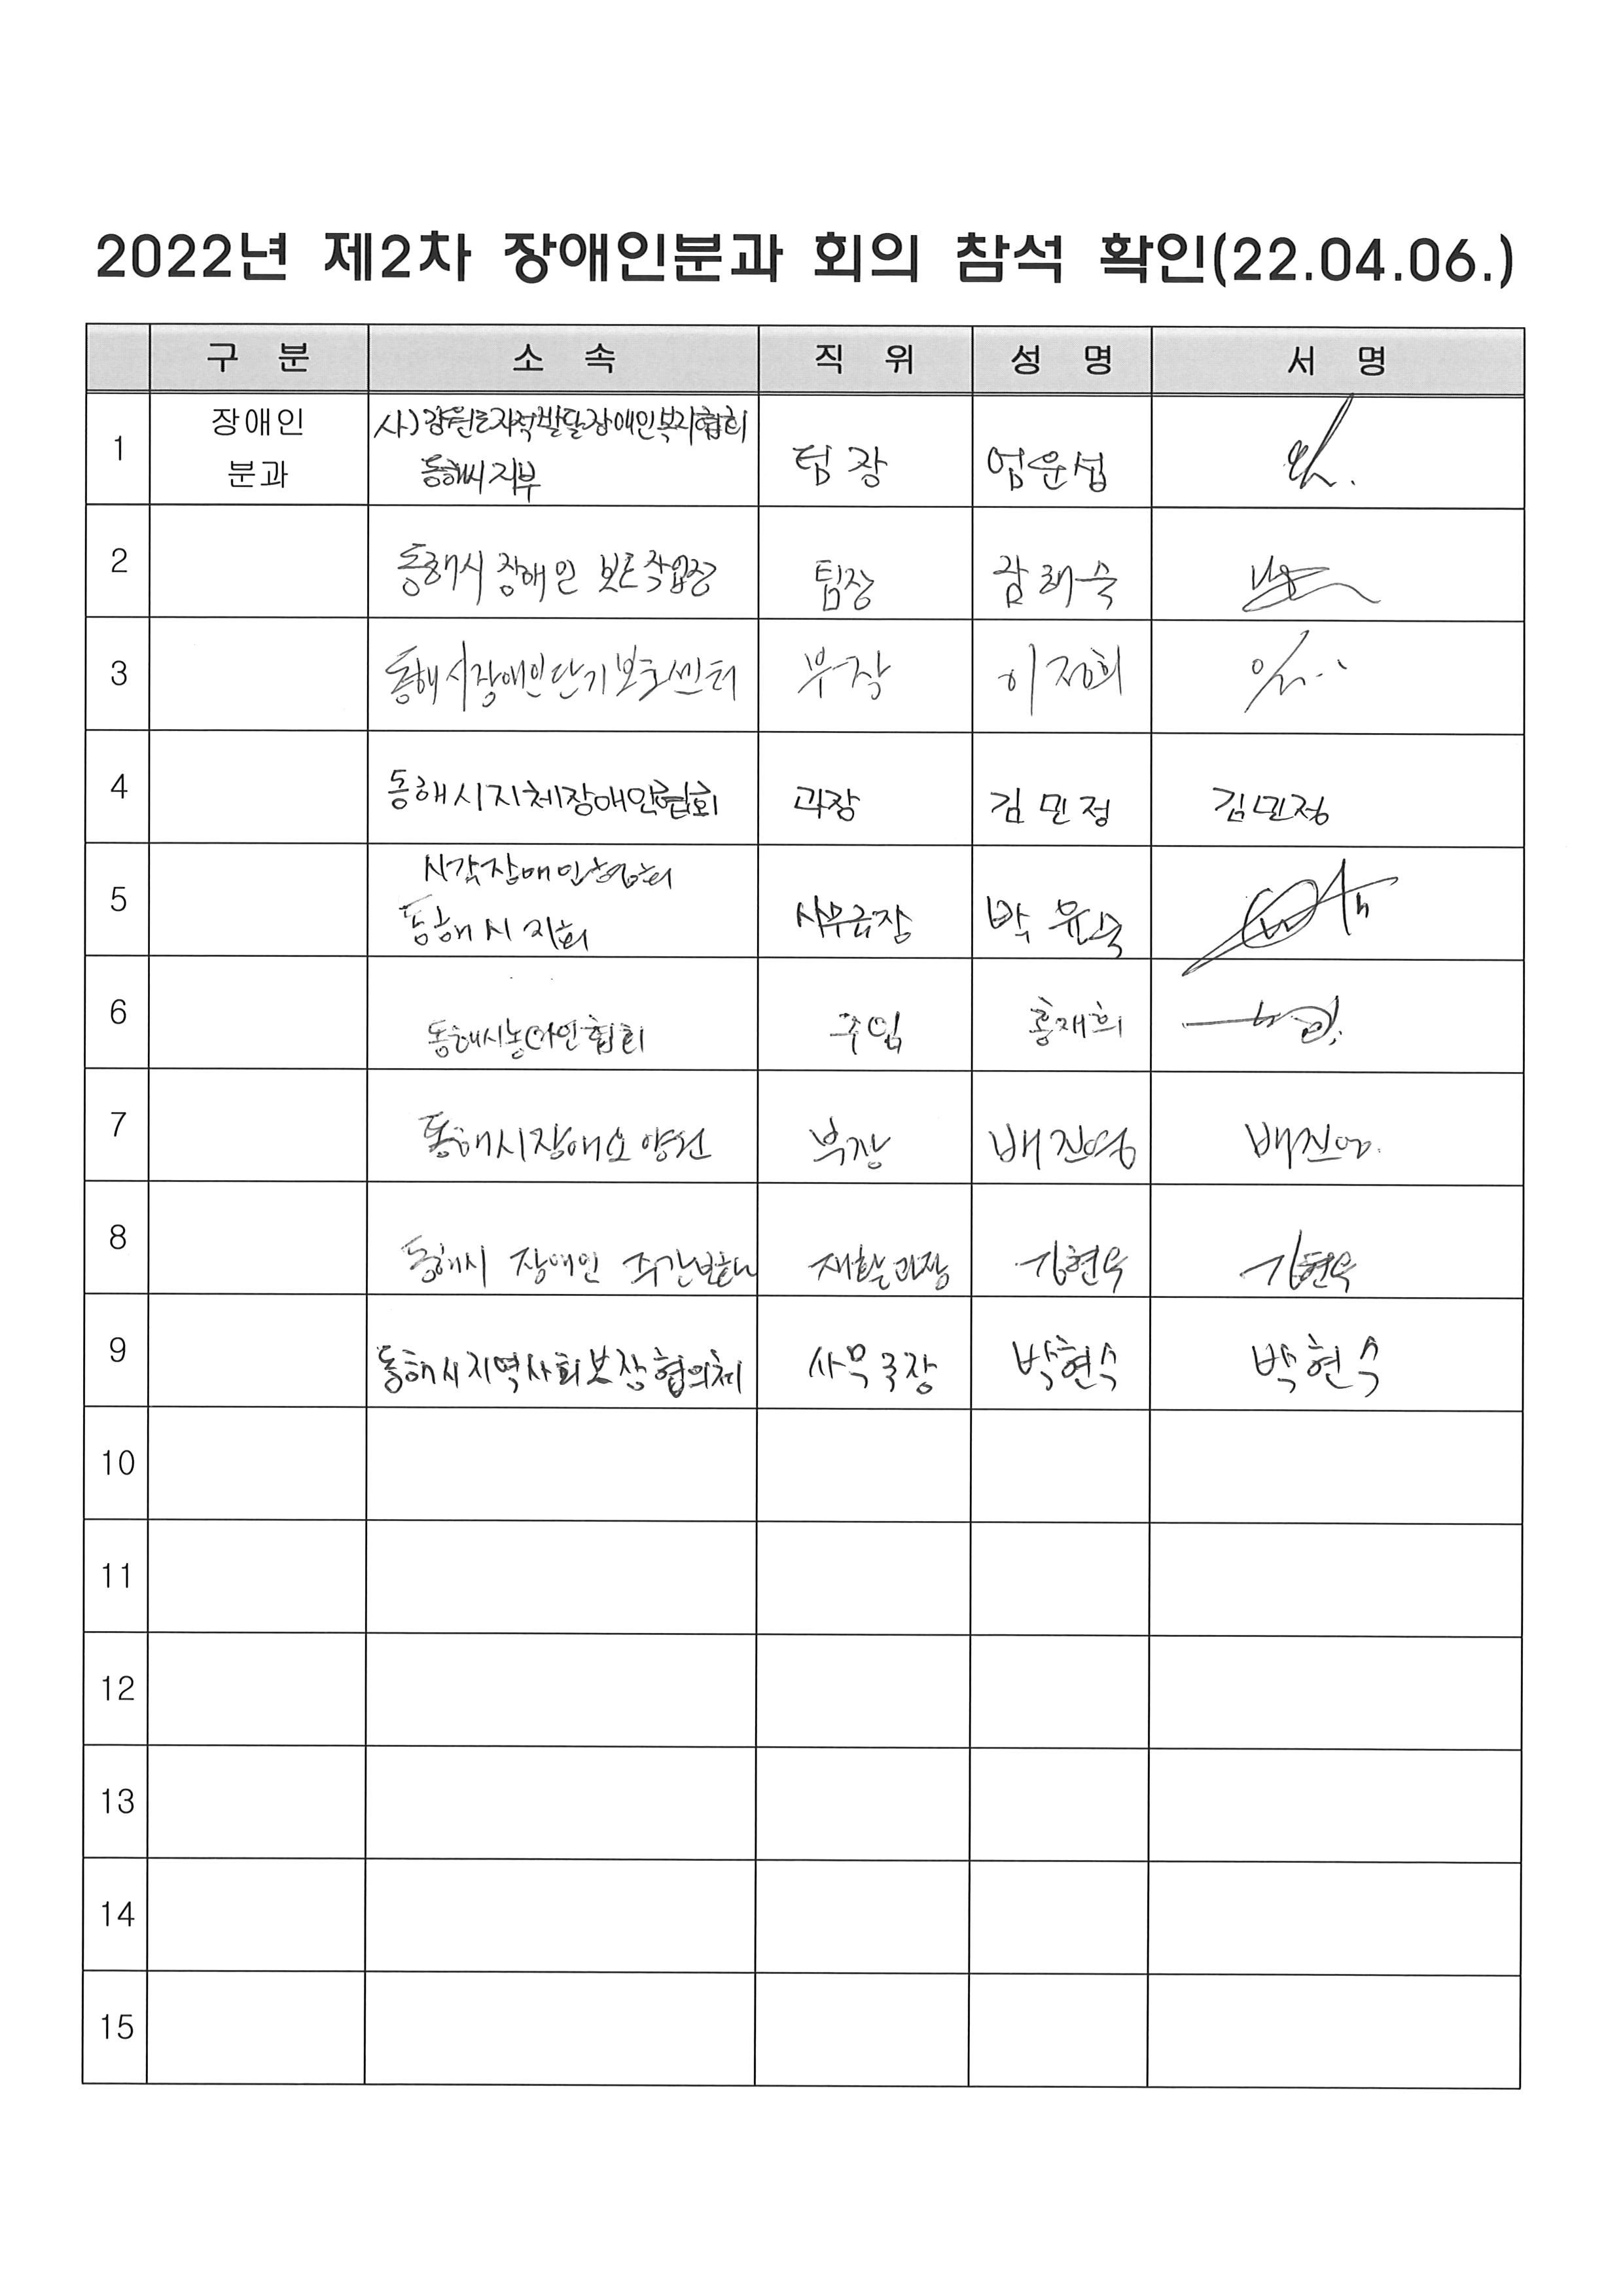 2022년 제2차 장애인분과 회의 참석 확인(22.04.06.)
구 분 소 속 직 위 성 명 서 명
1 장애인 분과 사)강원도지적발달장애인복지협회 동해시지부 팀장 엄운섭
2 동해시 장애인 보호작업장 팀장 함해숙
3 동해시장애인단기보호센터 부장 이정희
4 동해시지체장애인협회 과장 김민정 김민정
5 시각장애인협회 동해시지회 사무국장 박윤옥
6 동해시농아인협회 주임 홍재희
7 동해시장애요양원 부장 배진영 배진영
8 동해시 장애인 주간보호 재활과장 김현욱 김현욱
9 동해시지역사회보장협의체 사무국장 박현수 박현수
10
11
12
13
14
15